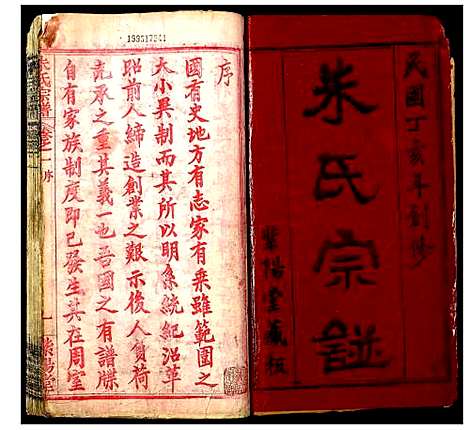 民國丁亥年創修
朱氏宗譜
紫陽堂藏板
序
國有史地方有志家有乘雖範圍之
大小異制而其所以明系統紀沿革
昭前人締造創業之艱示後人負荷
克承之重其義一也吾國之有譜牒
自有家族制度即已發生其在周室
朱氏宗譜 卷之一 序 一 紫陽堂